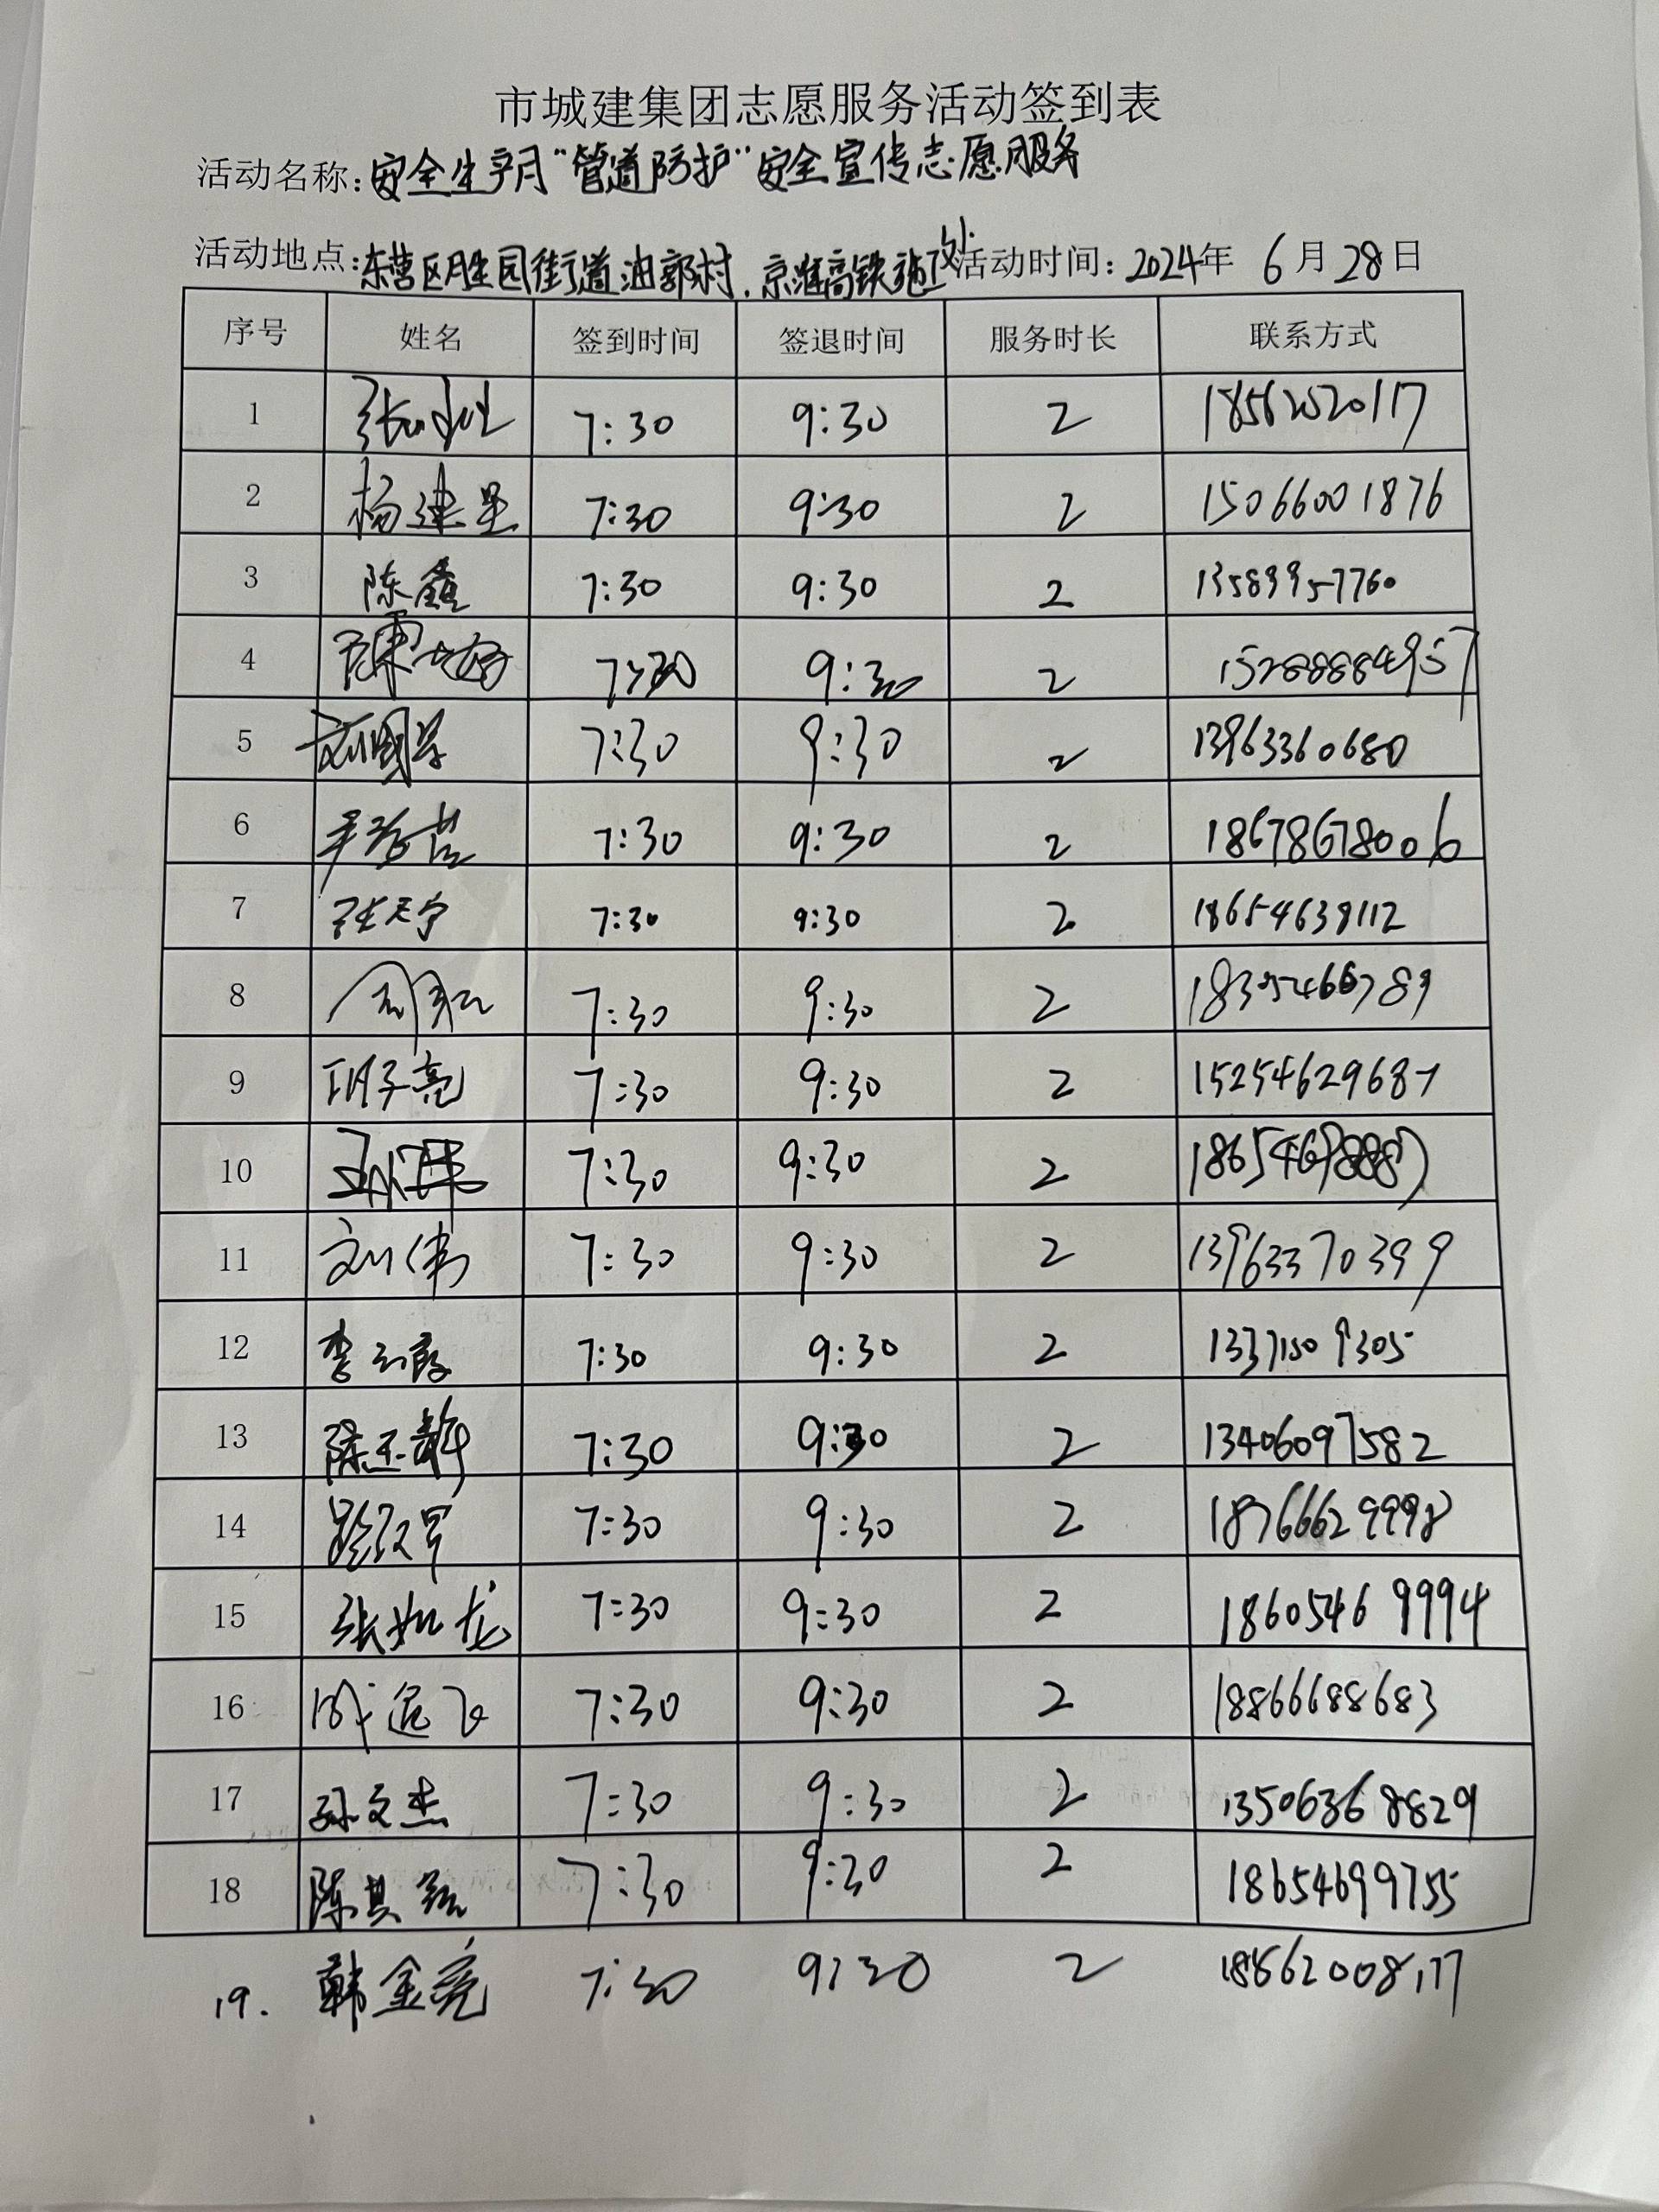 市城建集团志愿服务活动签到表
活动名称:安全生产月“管道防护”安全宣传志愿服务
活动地点:东营区胜园街道油郭村.京淮高铁施工处 活动时间:2024年 6月28日
序号 姓名 签到时间 签退时间 服务时长 联系方式
1 7:30 9:30 2
2 杨建星 7:30 9:30 2 15066001876
3 陈鑫 7:30 9:30 2 13589957760
4 7:30 9:30 2 15288884957
5 刘国学 7:30 9:30 2 13963360680
6 7:30 9:30 2 18678678006
7 张天宁 7:30 9:30 2 18654638112
8 7:30 9:30 2
9 7:30 9:30 2 15254629687
10 7:30 9:30 2
11 刘伟 7:30 9:30 2 13963370399
12 7:30 9:30 2 13371509305
13 陈玉静 7:30 9:30 2 13406097582
14 7:30 9:30 2 18766629998
15 张如龙 7:30 9:30 2 18605469994
16 7:30 9:30 2 18866688683
17 孙文杰 7:30 9:30 2 13506368829
18 7:30 9:30 2 18654699755
19. 韩金亮 7:30 9:30 2